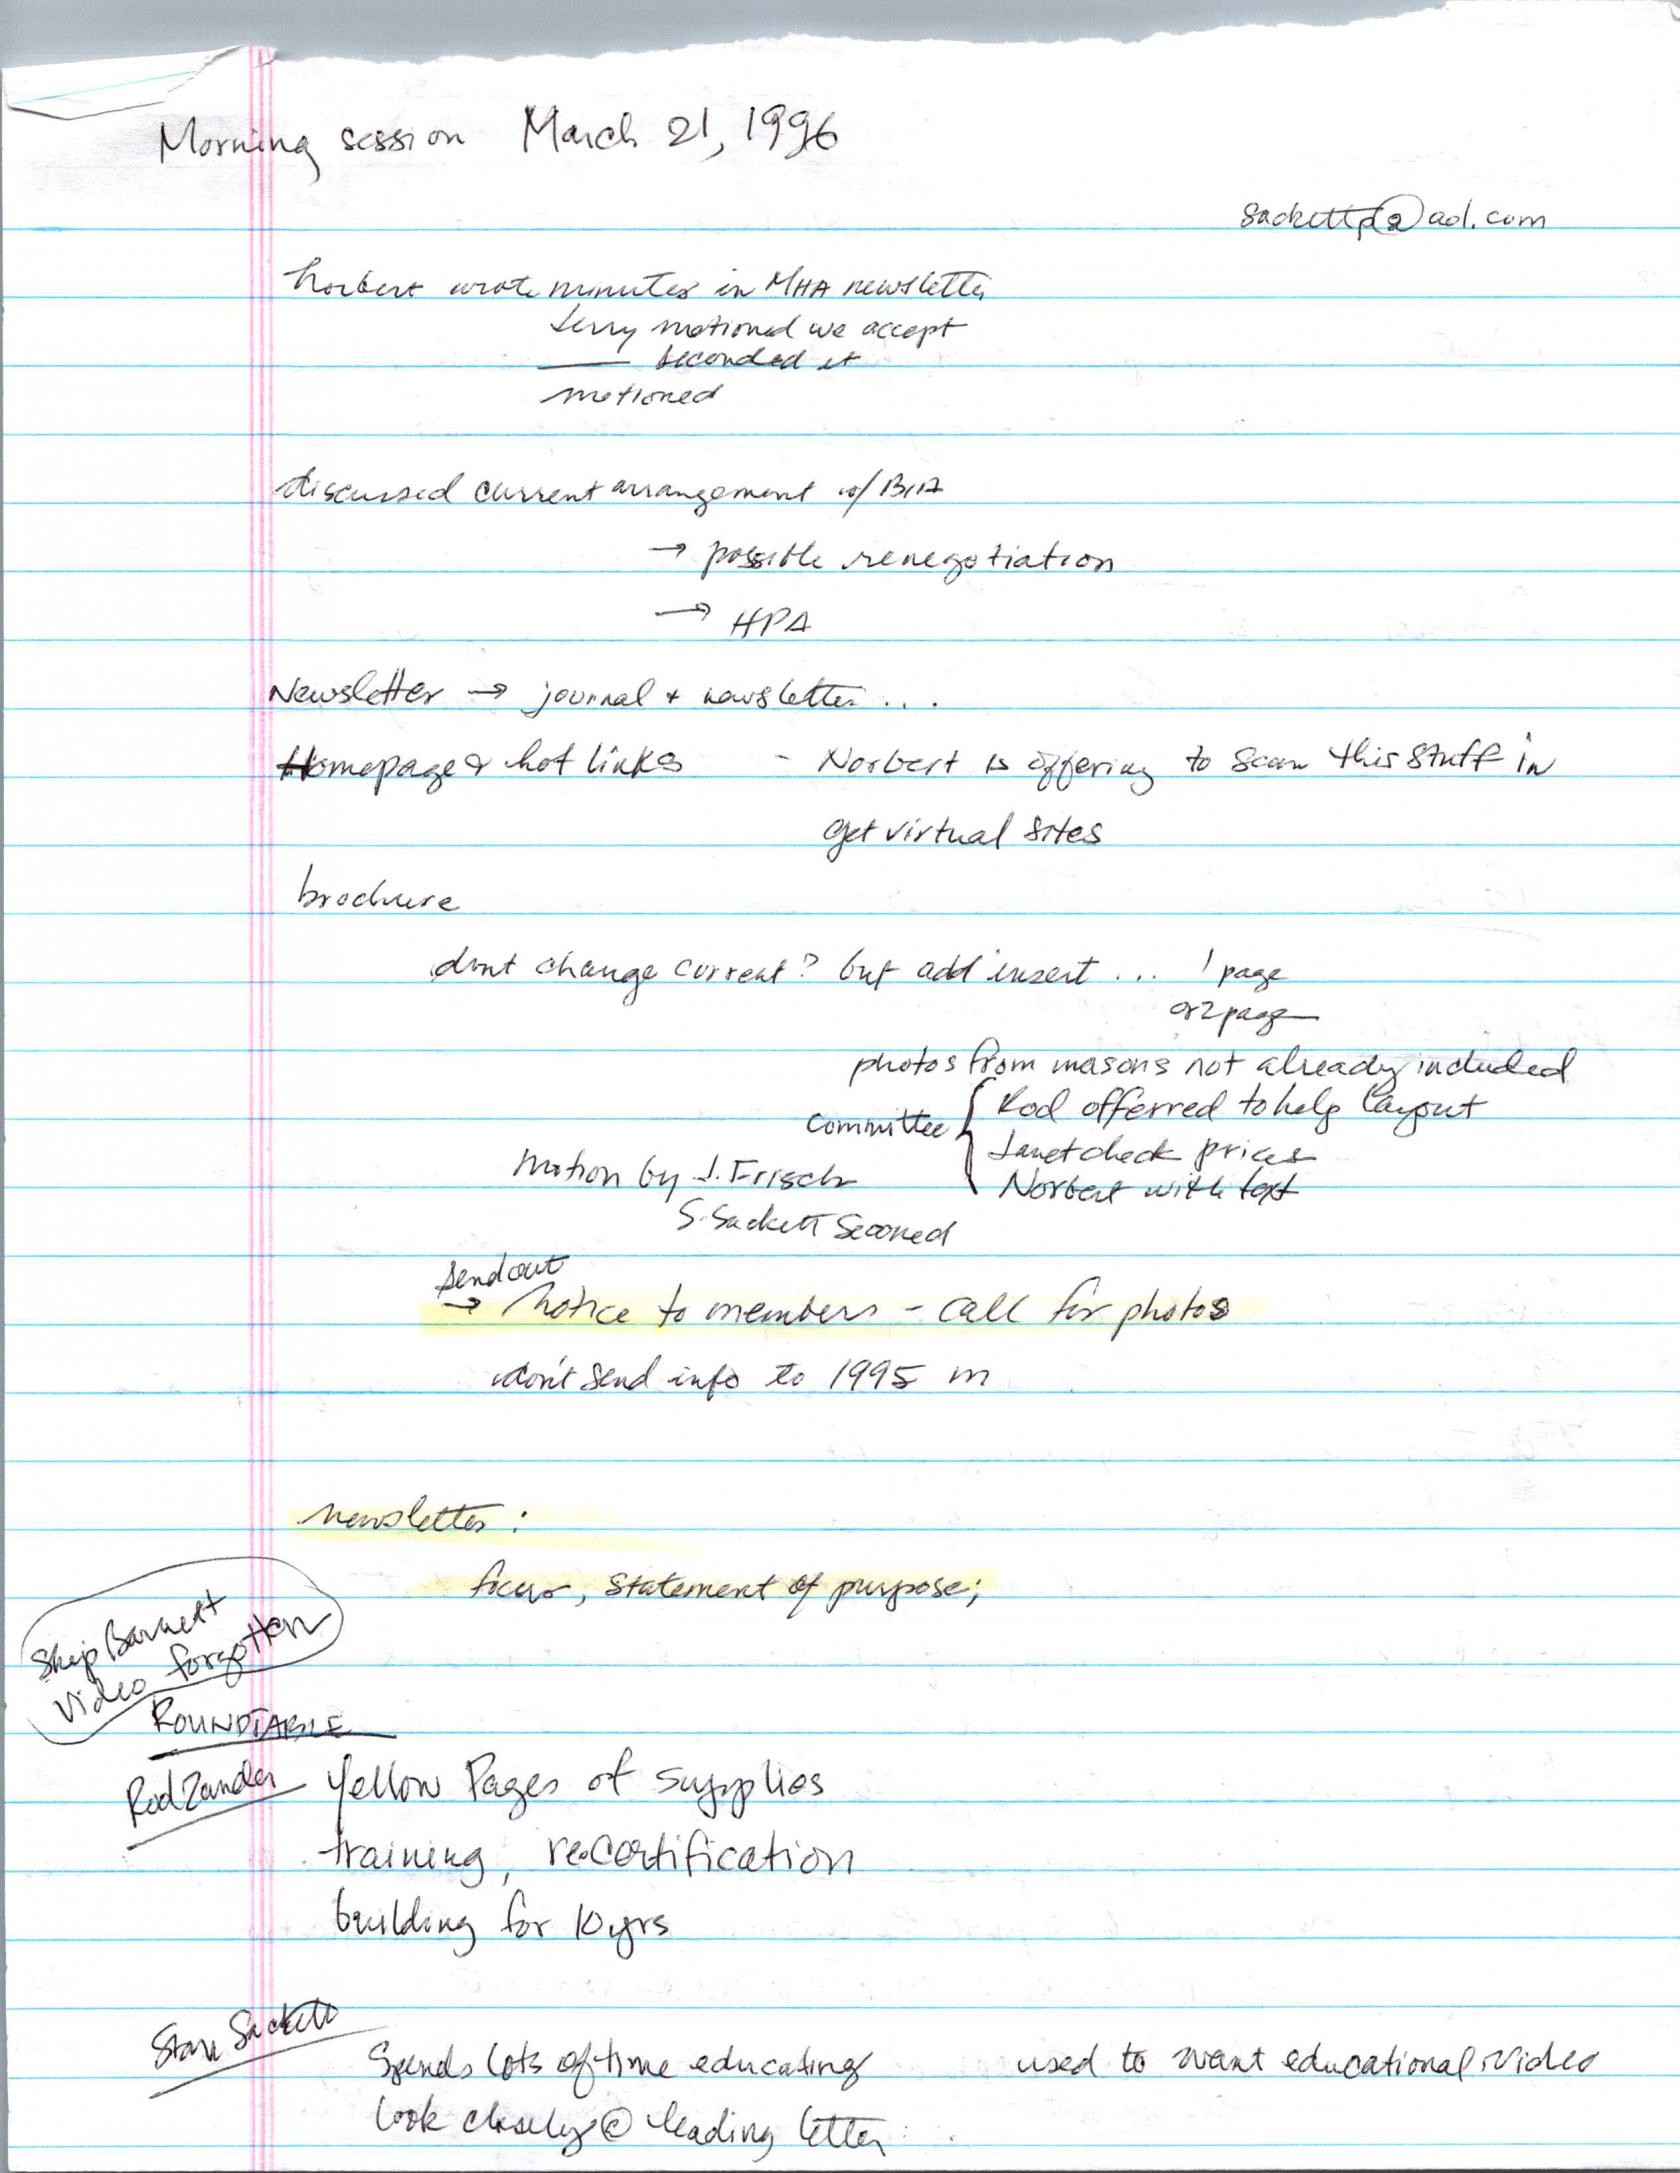 Morning session March 21, 1996
sackettp@aol.com
Norbert wrote minutes in MHA newsletter
Jerry motioned we accept
____ seconded it
motioned
discussed current arrangement w/ BIA
→ possible renegotiation
→ HPA
Newsletter → journal + newsletter ...
Homepage & hot links - Norbert is offering to scan this stuff in
get virtual sites
brochure
dont change current? but add insert ... 1 page
or 2 page
photos from masons not already included
committee { Rod offerred to help layout
Janet check prices
Norbert with text
Motion by J. Frisch
S. Sackett Seconed
send out
→ Notice to members - call for photos
don't send info to 1995 m
newsletter:
focus, statement of purpose;
Skip Barnett
video forgotten
ROUNDTABLE
Rod Zander Yellow Pages of supplies
training, recertification
building for 10 yrs
Stan Sackett
Spends lots of time educating used to want educational video
look closely @ leading letter